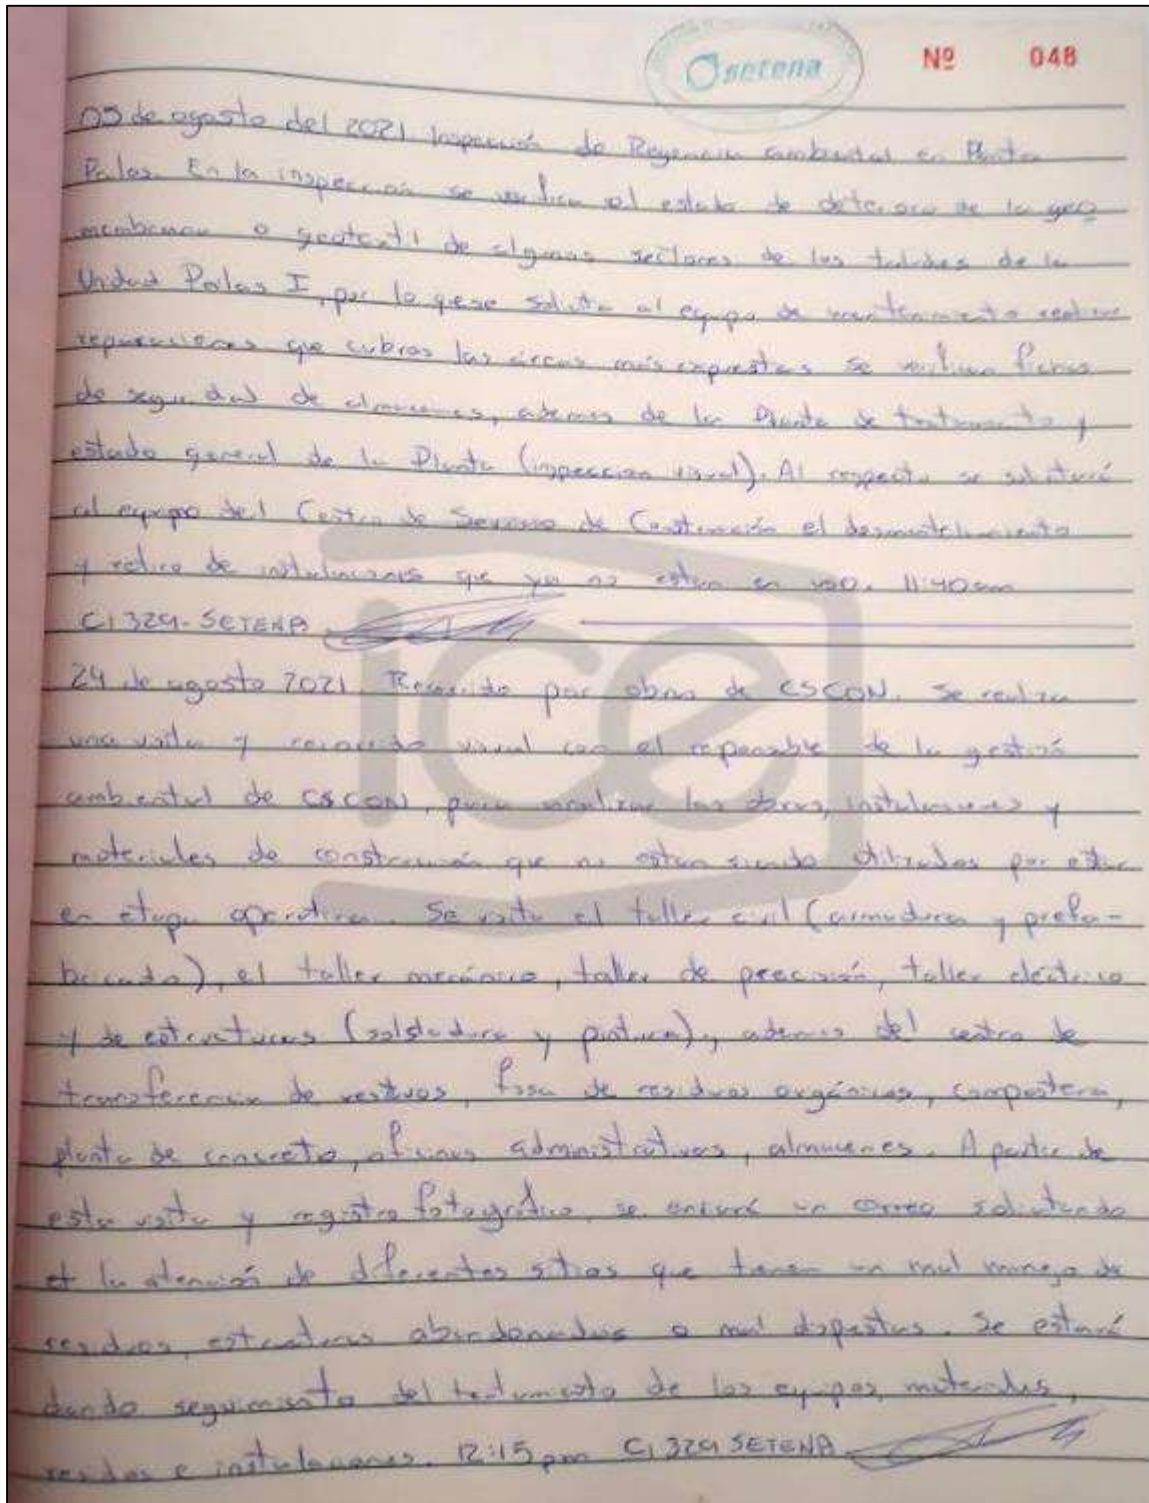 setena
Nº 048
05 de agosto del 2021. Inspección de Regencia ambiental en Planta
Pailas. En la inspección se verifica el estado de deterioro de la geo
membrana o geotextil de algunos sectores de los taludes de la
Unidad Pailas I, por lo que se solicita al equipo de mantenimiento realizar
reparaciones que cubran las áreas más expuestas. Se verifican fichas
de seguridad de almacenes, además de la Planta de tratamiento y
estado general de la Planta (inspección visual). Al respecto se solicitará
al equipo del Centro de Servicio de Construcción el desmantelamiento
y retiro de instalaciones que ya no estan en uso. 11:40am
CI 329-SETENA
ice
24 de agosto 2021. Recorrido por obras de CSCON. Se realiza
una visita y recorrido visual con el reponsable de la gestión
ambiental de CSCON, para las obras, instalaciones y
materiales de construcción que no estan siendo utilizados por estar
en etapa operativa. Se visita el taller civil (armadura y prefa-
bricado), el taller mecánico, taller de precisión, taller eléctrico
y de estructuras (soldadura y pintura), además del centro de
transferencia de residuos, fosa de residuos orgánicos, compostera,
planta de concreto, oficinas administrativas, almacenes. A partir de
esta visita y registro fotográfico, se enviará un correo solicitando
la atención de diferentes sitios que tienen un mal manejo de
residuos, estructuras abandonadas o mal dispuestas. Se estará
dando seguimiento del tratamiento de los equipos, materiales,
residuos e instalaciones. 12:15 pm CI 329 SETENA